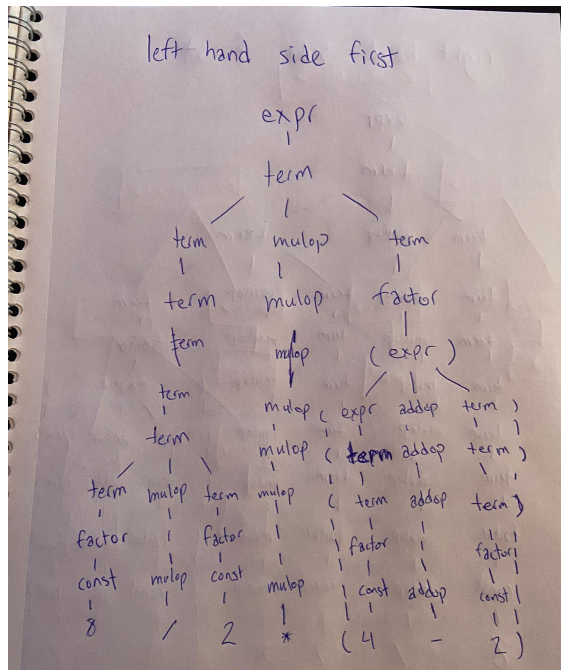 left hand side first
expr
term
term mulop term
term mulop factor
term mulop ( expr )
term mulop ( expr addop term )
term mulop ( term addop term )
term mulop term mulop ( term addop term )
factor factor factor factor
const mulop const mulop const addop const
8 / 2 * ( 4 - 2 )